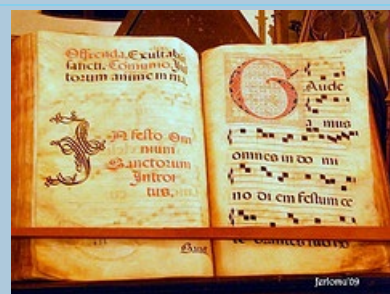 Offerenda. Exultabūt
sancti. Comunio. Just
torum anime in ma.
In festo Om
nium
Sanctorum
Introi
tus.
Gau
GAude
a mus
omnes in do mi
no di em festum ce
ferloma'09